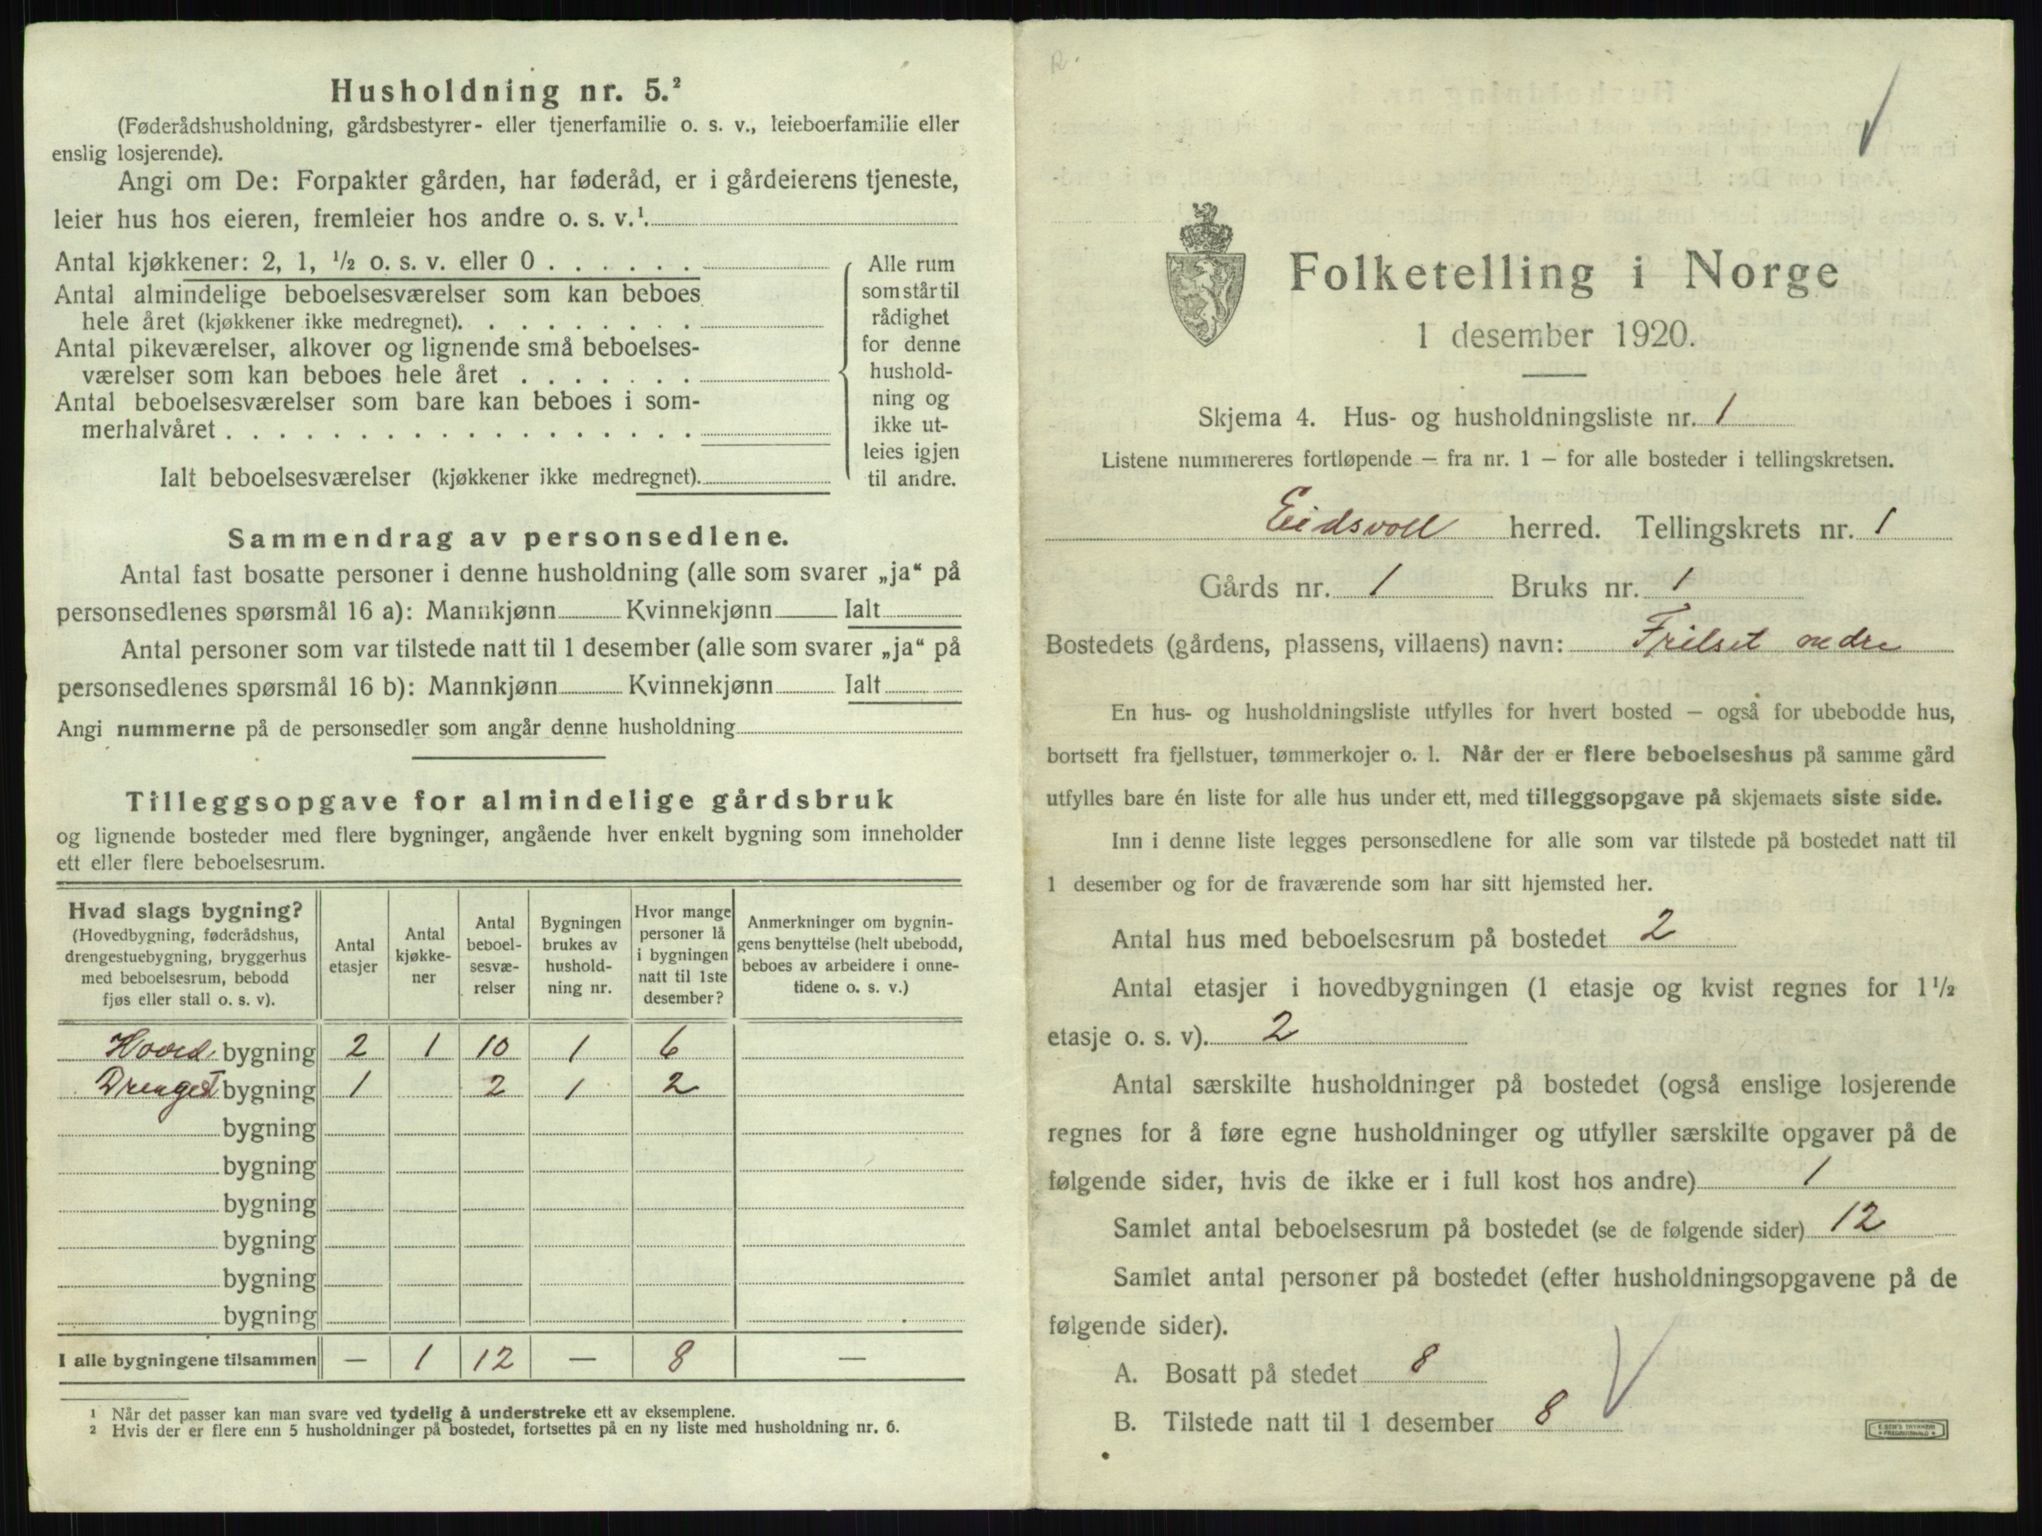 Husholdning nr. 5.²
(Føderådshusholdning, gårdsbestyrer- eller tjenerfamilie o. s. v., leieboerfamilie eller
enslig losjerende).
Angi om De: Forpakter gården, har føderåd, er i gårdeierens tjeneste,
leier hus hos eieren, fremleier hos andre o. s. v.¹.
Antal kjøkkener: 2, 1, ½ o. s. v. eller 0 . . . . . .
Antal almindelige beboelsesværelser som kan beboes
hele året (kjøkkener ikke medregnet). . . . . . . . .
Antal pikeværelser, alkover og lignende små beboelses-
værelser som kan beboes hele året . . . . . . .
Antal beboelsesværelser som bare kan beboes i som-
merhalvåret . . . . . . . . . . . . . . . . . .
Ialt beboelsesværelser (kjøkkener ikke medregnet).
Alle rum
som står til
rådighet
for denne
hushold-
ning og
ikke ut-
leies igjen
til andre.
Sammendrag av personsedlene.
Antal fast bosatte personer i denne husholdning (alle som svarer „ja“ på
personsedlenes spørsmål 16 a): Mannkjønn Kvinnekjønn Ialt
Antal personer som var tilstede natt til 1 desember (alle som svarer „ja“ på
personsedlenes spørsmål 16 b): Mannkjønn Kvinnekjønn Ialt
Angi nummerne på de personsedler som angår denne husholdning
Tilleggsopgave for almindelige gårdsbruk
og lignende bosteder med flere bygninger, angående hver enkelt bygning som inneholder
ett eller flere beboelsesrum.
Hvad slags bygning?
(Hovedbygning, føderådshus,
drengestuebygning, bryggerhus
med beboelsesrum, bebodd
fjøs eller stall o. s. v).
Antal
etasjer
Antal
kjøkke-
ner
Antal
beboel-
sesvæ-
relser
Bygningen
brukes av
hushold-
ning nr.
Hvor mange
personer lå
i bygningen
natt til 1ste
desember?
Anmerkninger om bygnin-
gens benyttelse (helt ubebodd,
beboes av arbeidere i onne-
tidene o. s. v.)
Hoved bygning 2 1 10 1 6
Drengest bygning 1 2 1 2
bygning
bygning
bygning
bygning
bygning
bygning
I alle bygningene tilsammen — 1 12 — 8 —
¹ Når det passer kan man svare ved tydelig å understreke ett av eksemplene.
² Hvis der er flere enn 5 husholdninger på bostedet, fortsettes på en ny liste med husholdning nr. 6.
R.
Folketelling i Norge
1 desember 1920.
Skjema 4. Hus- og husholdningsliste nr. 1
Listene nummereres fortløpende – fra nr. 1 – for alle bosteder i tellingskretsen.
Eidsvoll herred. Tellingskrets nr. 1
Gårds nr. 1 Bruks nr. 1
Bostedets (gårdens, plassens, villaens) navn: Frilset nedre
En hus- og husholdningsliste utfylles for hvert bosted – også for ubebodde hus,
bortsett fra fjellstuer, tømmerkojer o. l. Når der er flere beboelseshus på samme gård
utfylles bare én liste for alle hus under ett, med tilleggsopgave på skjemaets siste side.
Inn i denne liste legges personsedlene for alle som var tilstede på bostedet natt til
1 desember og for de fraværende som har sitt hjemsted her.
Antal hus med beboelsesrum på bostedet 2
Antal etasjer i hovedbygningen (1 etasje og kvist regnes for 1½
etasje o. s. v). 2
Antal særskilte husholdninger på bostedet (også enslige losjerende
regnes for å føre egne husholdninger og utfyller særskilte opgaver på de
følgende sider, hvis de ikke er i full kost hos andre) 1
Samlet antal beboelsesrum på bostedet (se de følgende sider) 12
Samlet antal personer på bostedet (efter husholdningsopgavene på de
følgende sider).
A. Bosatt på stedet 8
B. Tilstede natt til 1 desember 8